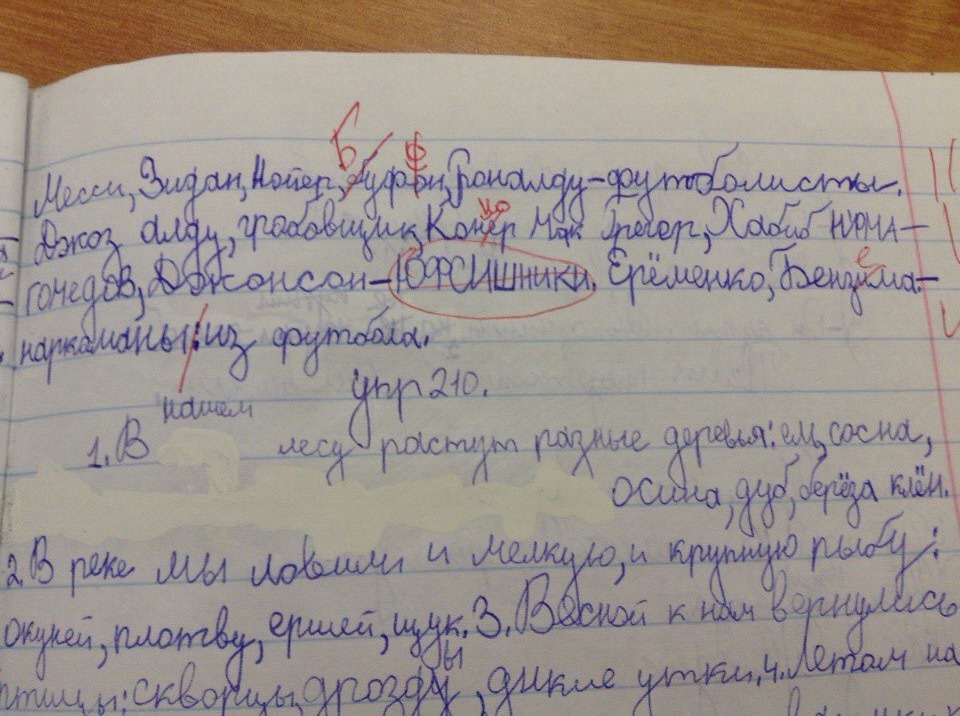 Месси, Зидан, Нойер, Буффон, Роналду-футболисты.
Джоз алду, гробовщик, Конер Мак Грегор, Хабиб НУРМА-
гомедов, Джонсон-ЮФСИшники. Ерёменко, Бензема-
наркоманы:из футбола.
упр 210.
1. В нашем лесу растут разные деревья: ель, сосна,
осина, дуб, берёза клён.
2. В реке мы ловили и мелкую, и крупную рыбу:
окуней, плотву, ершей, щук. 3. Весной к нам вернулись
птицы: скворцы, дрозды, дикие утки. 4. Летом на